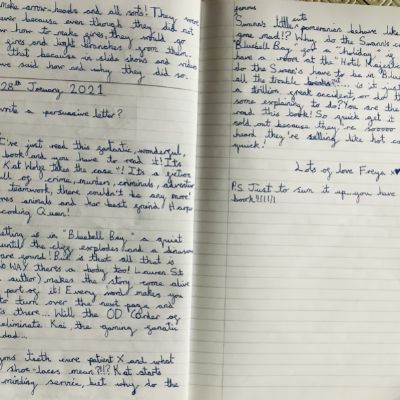 make arrow-heads and all sorts! They most
ever because even though they did not
how to make fires, they would so
fires and light branches from them.
that because in slide shows and video
we said how and why they did so.
28th January 2021
write a persuasive letter?
I've just read this fantastic, wonderful,
book and you have to read it! It's
Kat Wolfe takes the case"! It's a fiction
full of crime, murders, criminals, adventure
teamwork, there couldn't be any more!
loves animals and her best friend Harper
coding Queen!
setting is in "Bluebell Bay," a quiet
until the cliff explodes and a dinosaur
are found! But is that all that is
NO WAY there's a body too! Lauren St
author) makes the story come alive
part of it! Every word makes you
to turn over the next page and
is there... Will the OD (Order of
eliminate Kai the gaming fanatic
dad...
teeth cure patient X and what
shoe-laces mean?!!? Kat starts
minding service, but why do the
famous
Swann's little cute pomeranian behave like
gone mad!? Why do the Swann's
Bluebell Bay for a "holiday"
have a room at the "Hotel Majestic
do the Swann's have to be in
all the trouble is it just
a trillion great accident, or did
some explaining to do? You are the
read this book! So quick get it
sold out because they're sooooo
heard they're selling like hot
quick!
Lots of love Freya x♥
P.S. Just to sum it up, you have
book!!!!!!